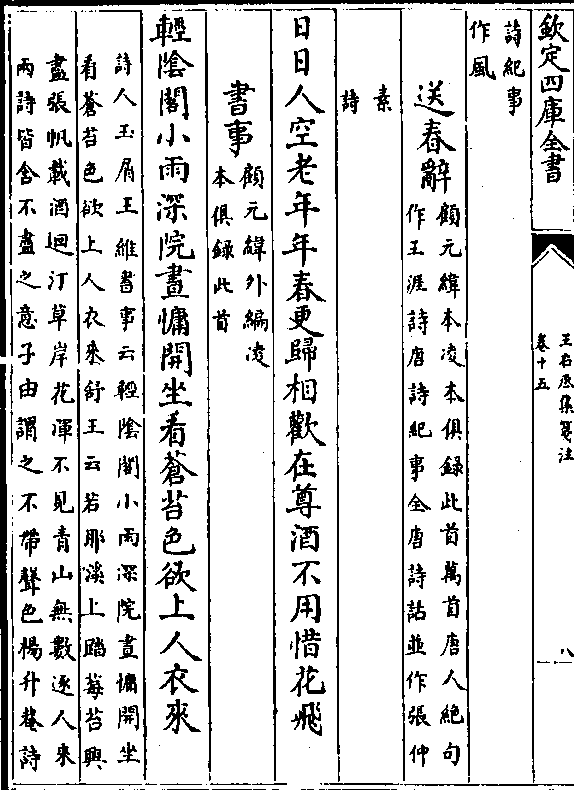 欽定四庫全書
王右丞集箋注
卷十五
八
詩紀事
作風
送春辭
顧元緯本凌本俱録此首萬首唐人絶句
作王涯詩唐詩紀事全唐詩話並作張仲
素
詩
日日人空老年年春更歸相歡在尊酒不用惜花飛
書事
顧元緯外編凌
本俱録此首
輕陰閣小雨深院晝慵開坐看蒼苔色欲上人衣來
詩人玉屑王維書事云輕陰閣小雨深院晝慵開坐
看蒼苔色欲上人衣來舒王云若耶溪上踏莓苔興
盡張帆載酒迴汀草岸花渾不見青山無數逐人來
兩詩皆含不盡之意子由謂之不帶聲色楊升菴詩